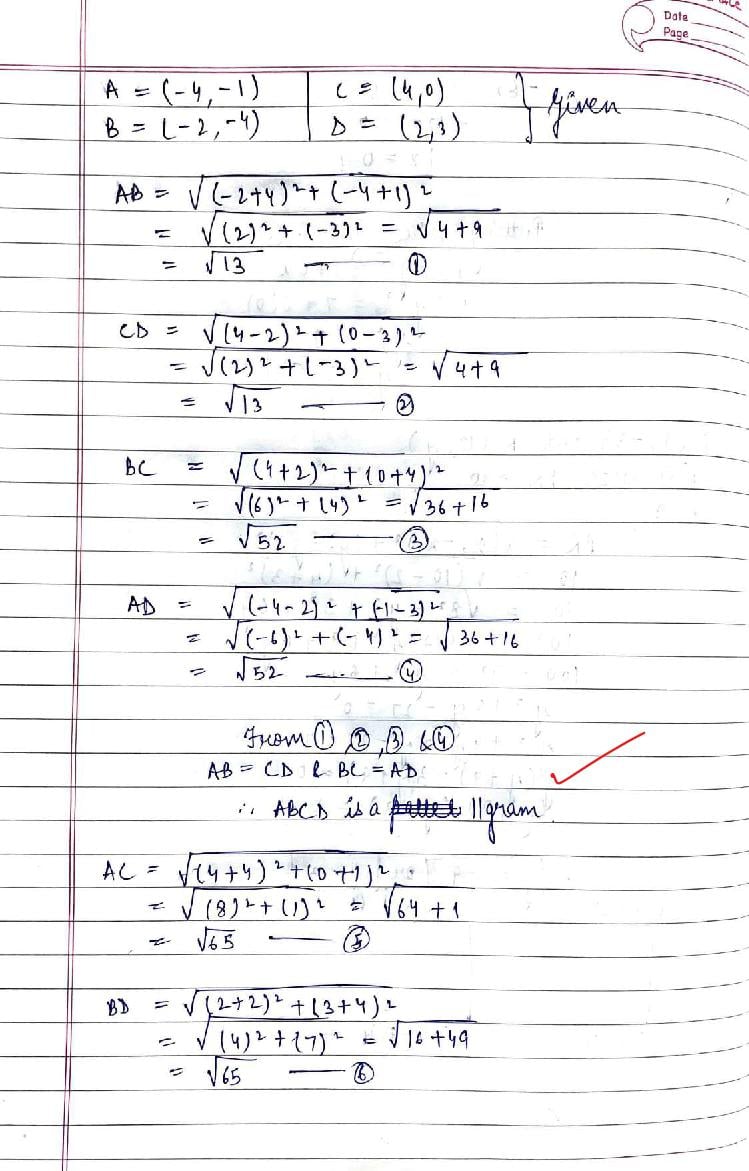 Date
Page
A = (-4, -1) | C = (4,0) } given
B = (-2, -4) | D = (2,3)
AB = √(-2+4)² + (-4+1)²
= √(2)² + (-3)² = √4+9
= √13 — ①
CD = √(4-2)² + (0-3)²
= √(2)² + (-3)² = √4+9
= √13 — ②
BC = √(4+2)² + (0+4)²
= √(6)² + (4)² = √36+16
= √52 — ③
AD = √(-4-2)² + (-1-3)²
= √(-6)² + (-4)² = √36+16
= √52 — ④
From ① ②, ③ & ④
AB = CD & BC = AD
∴ ABCD is a ||gram.
AC = √(4+4)² + (0+1)²
= √(8)² + (1)² = √64+1
= √65 — ⑤
BD = √(2+2)² + (3+4)²
= √(4)² + (7)² = √16+49
= √65 — ⑥